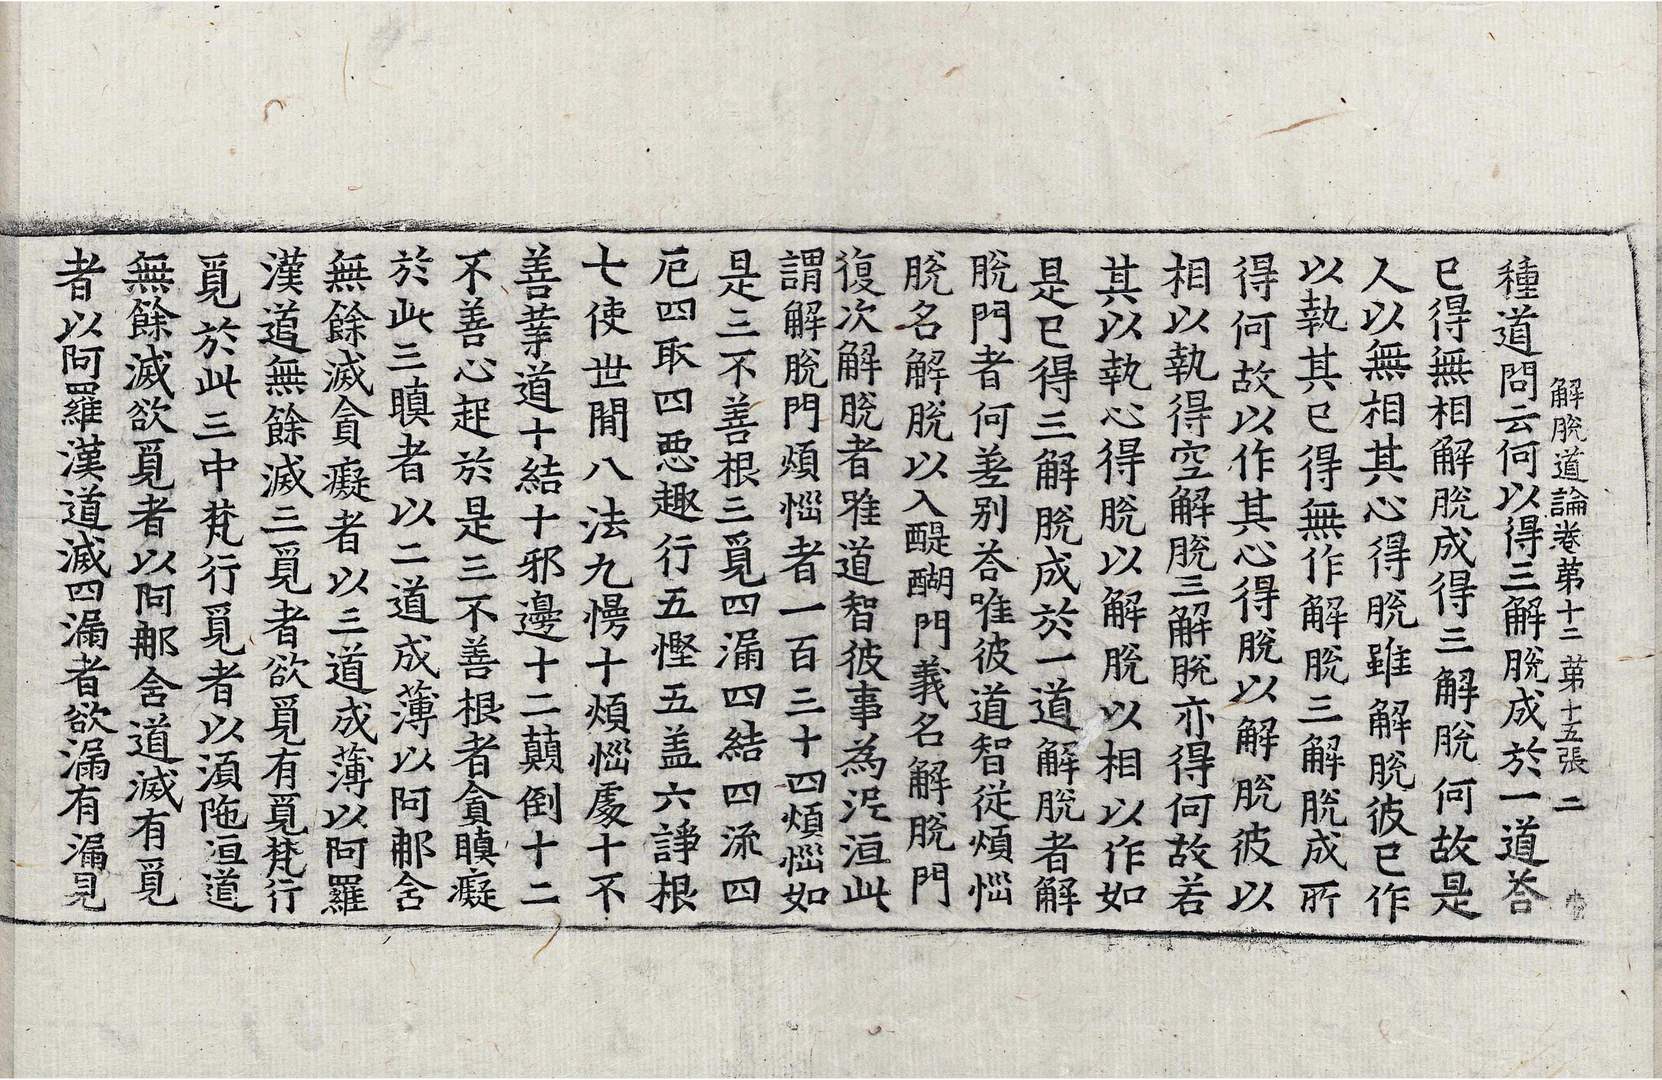 解脫道論卷第十二 第十五張 二
種道問云何以得三解脫成於一道荅
已得無相解脫成得三解脫何故是
人以無相其心得脫雖解脫彼已作
以執其已得無作解脫三解脫成所
得何故以作其心得脫以解脫彼以
相以執得空解脫三解脫亦得何故若
其以執心得脫以解脫以相以作如
是已得三解脫成於一道解脫者解
脫門者何差别荅唯彼道智從煩惱
脫名解脫以入醍醐門義名解脫門
復次解脫者唯道智彼事為泥洹此
謂解脫門煩惱者一百三十四煩惱如
是三不善根三覓四漏四結四流四
厄四取四惡趣行五慳五盖六諍根
七使世間八法九慢十煩惱處十不
善業道十結十邪邊十二顛倒十二
不善心起於是三不善根者貪瞋癡
於此三瞋者以二道成薄以阿那含
無餘滅貪癡者以三道成薄以阿羅
漢道無餘滅三覓者欲覓有覓梵行
覓於此三中梵行覓者以須陁洹道
無餘滅欲覓者以阿那含道滅有覓
者以阿羅漢道滅四漏者欲漏有漏見